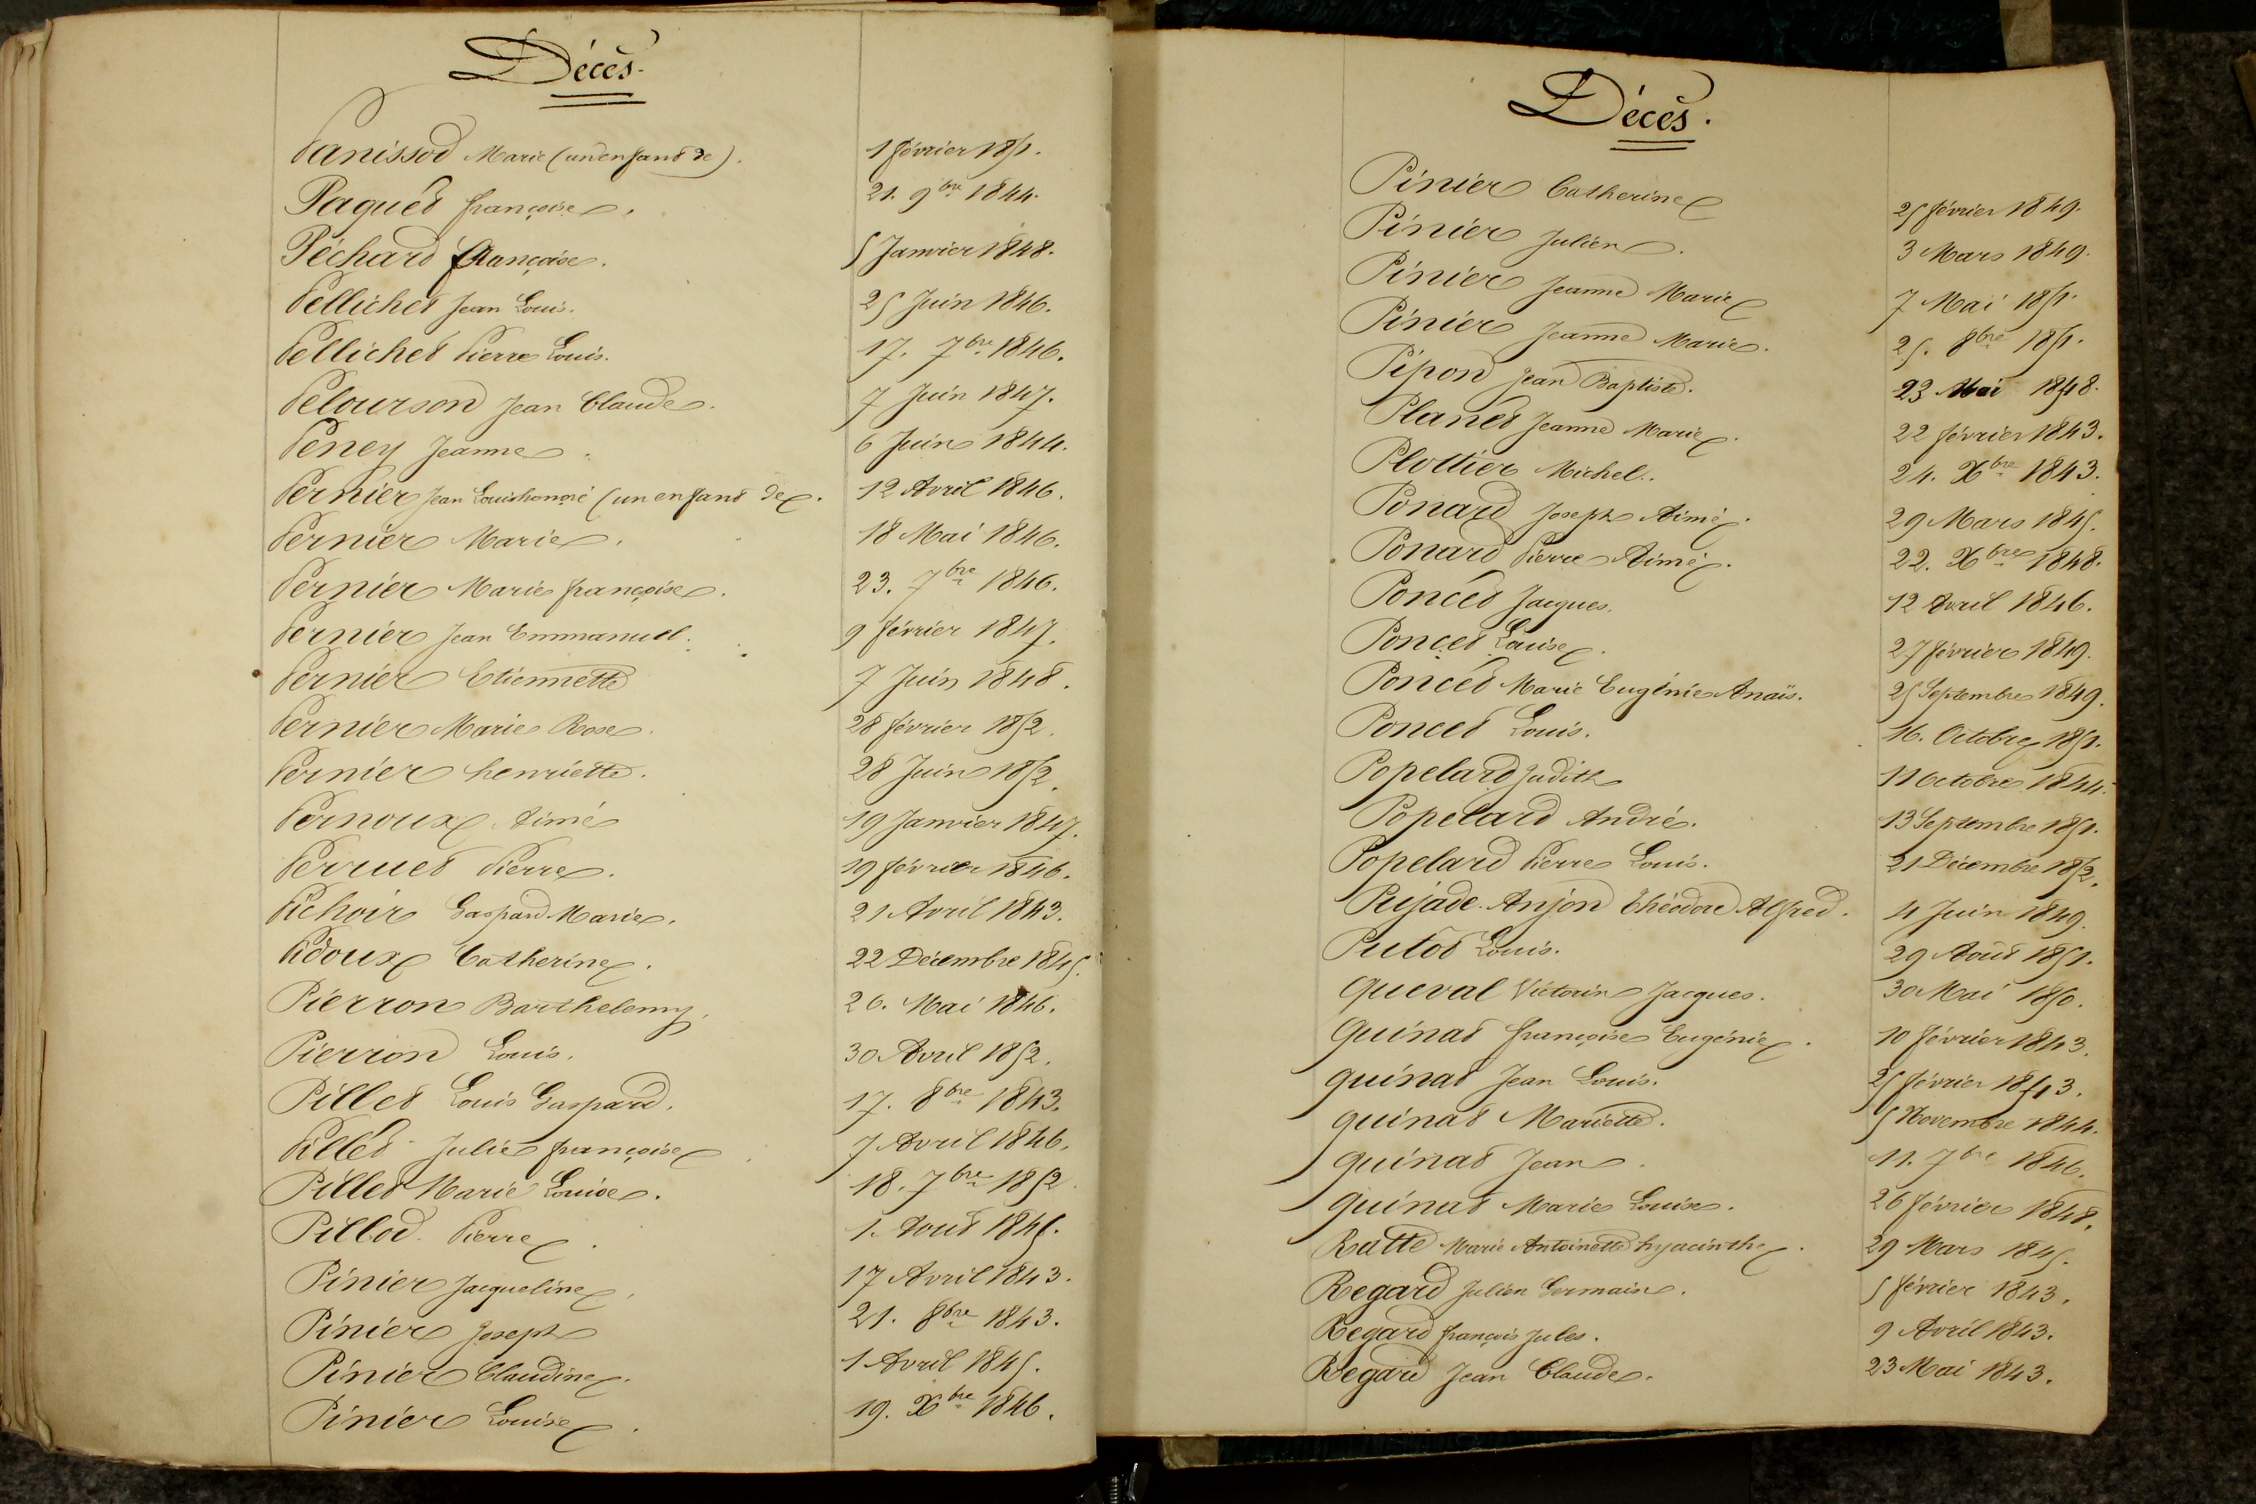 Décès.
Panissod Marie (un enfant de). 1 février 1851.
Paquet françoise. 21. 9bre 1844.
Péchard françoise. 5 Janvier 1848.
Pellichet Jean Louis. 25 Juin 1846.
Pellichet Pierre Louis. 17. 7bre 1846.
Pelourson Jean Claude. 7 Juin 1847.
Peney Jeanne. 6 Juin 1844.
Pernier Jean Louis honoré (un enfant de). 12 Avril 1846.
Pernier Marie. 18 Mai 1846.
Pernier Marie françoise. 23. 7bre 1846.
Pernier Jean Emmanuel. 9 février 1847.
Pernier Etiennette 7 Juin 1848.
Pernier Marie Rose. 28 février 1852.
Pernier henriette. 28 Juin 1852.
Pernoux Aimé 19 Janvier 1847.
Perruet Pierre. 19 février 1846.
Pichoir Gaspard Marie. 21 Avril 1843.
Pidoux Catherine. 22 Décembre 1845.
Pierron Barthelemy. 26. Mai 1846.
Pierron Louis. 30 Avril 1852.
Pillet Louis Gaspard. 17. 8bre 1843.
Pillet Julie françoise 7 Avril 1846.
Pillet Marie Louise. 18. 7bre 1852
Pillod Pierre. 1. Août 1845.
Pinier Jacqueline. 17 Avril 1843.
Pinier Joseph 21. 8bre 1843.
Pinier Claudine. 1 Avril 1845.
Pinier Louise. 19. Xbre 1846.
Décès.
Pinier Catherine 25 février 1849.
Pinier Julien. 3 Mars 1849.
Pinier Jeanne Marie 7 Mai 1851.
Pinier Jeanne Marie. 25. 8bre 1851.
Pipon Jean Baptiste. 23 Mai 1848.
Planet Jeanne Marie. 22 février 1843.
Plottier Michel. 24. Xbre 1843.
Ponard Joseph Aimé. 29 Mars 1845.
Ponard Pierre Aimé. 22. Xbre 1848.
Poncet Jacques. 12 Avril 1846.
Poncet Louise. 27 février 1849.
Poncet Marie Eugénie Anaïs. 25 Septembre 1849.
Poncet Louis. 16. Octobre 1851.
Popelard Judith 11 Octobre 1844.
Popelard André. 13 Septembre 1851.
Popelard Pierre Louis. 21 Décembre 1852.
Pujade-Anjon Théodore Alfred. 4 Juin 1849.
Putod Louis. 29 Août 1851.
Queval Victorin Jacques. 30 Mai 1850.
Quinat françoise Eugénie. 10 février 1843.
quinat Jean Louis. 25 février 1843.
quinat Mariette. 5 Novembre 1844.
quinat Jean. 11. 7bre 1846.
quinat Marie Louise. 26 février 1848.
Ratte Marie Antoinette hyacinthe. 29 Mars 1845.
Regard Julien Germain. 5 février 1843.
Regard françois Jules. 9 Avril 1843.
Regard Jean Claude. 23 Mai 1843.